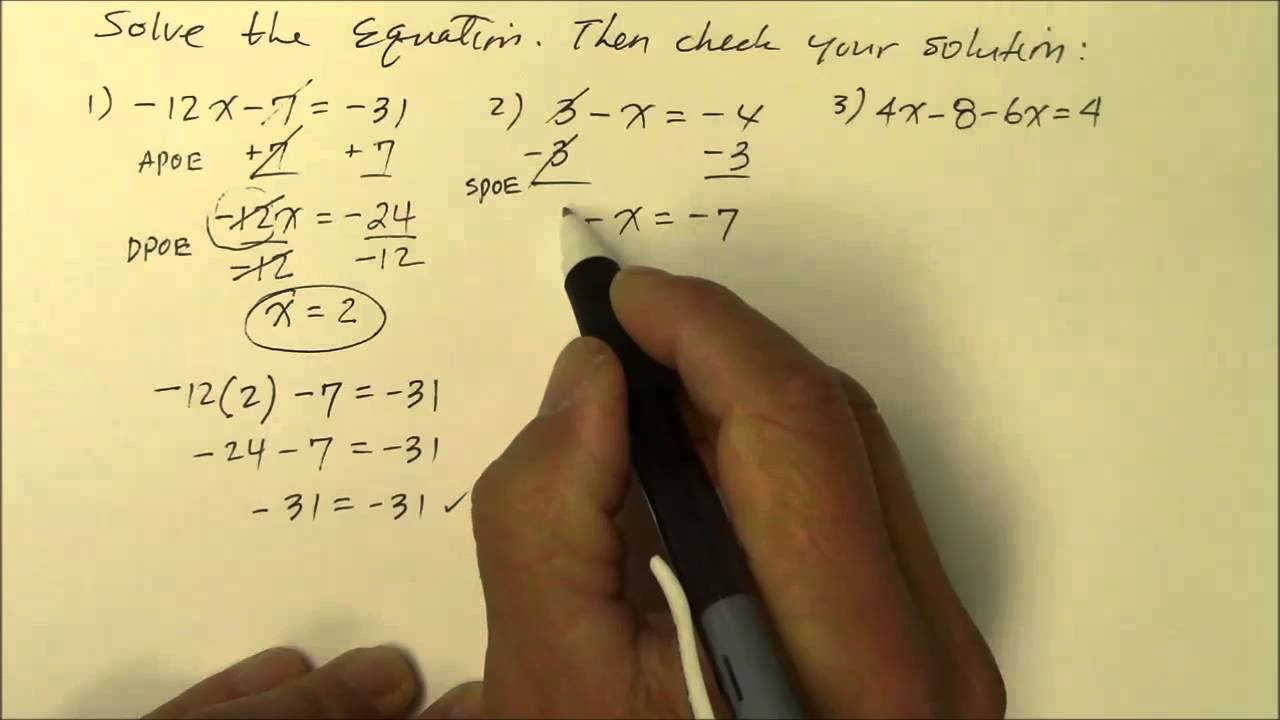 Solve the Equation. Then check your solution:
1) -12x - 7 = -31
APOE +7 +7
-12x = -24
DPOE -12 -12
x = 2
-12(2) - 7 = -31
-24 - 7 = -31
-31 = -31 ✓
2) 3 - x = -4
SPOE -3 -3
-x = -7
3) 4x - 8 - 6x = 4